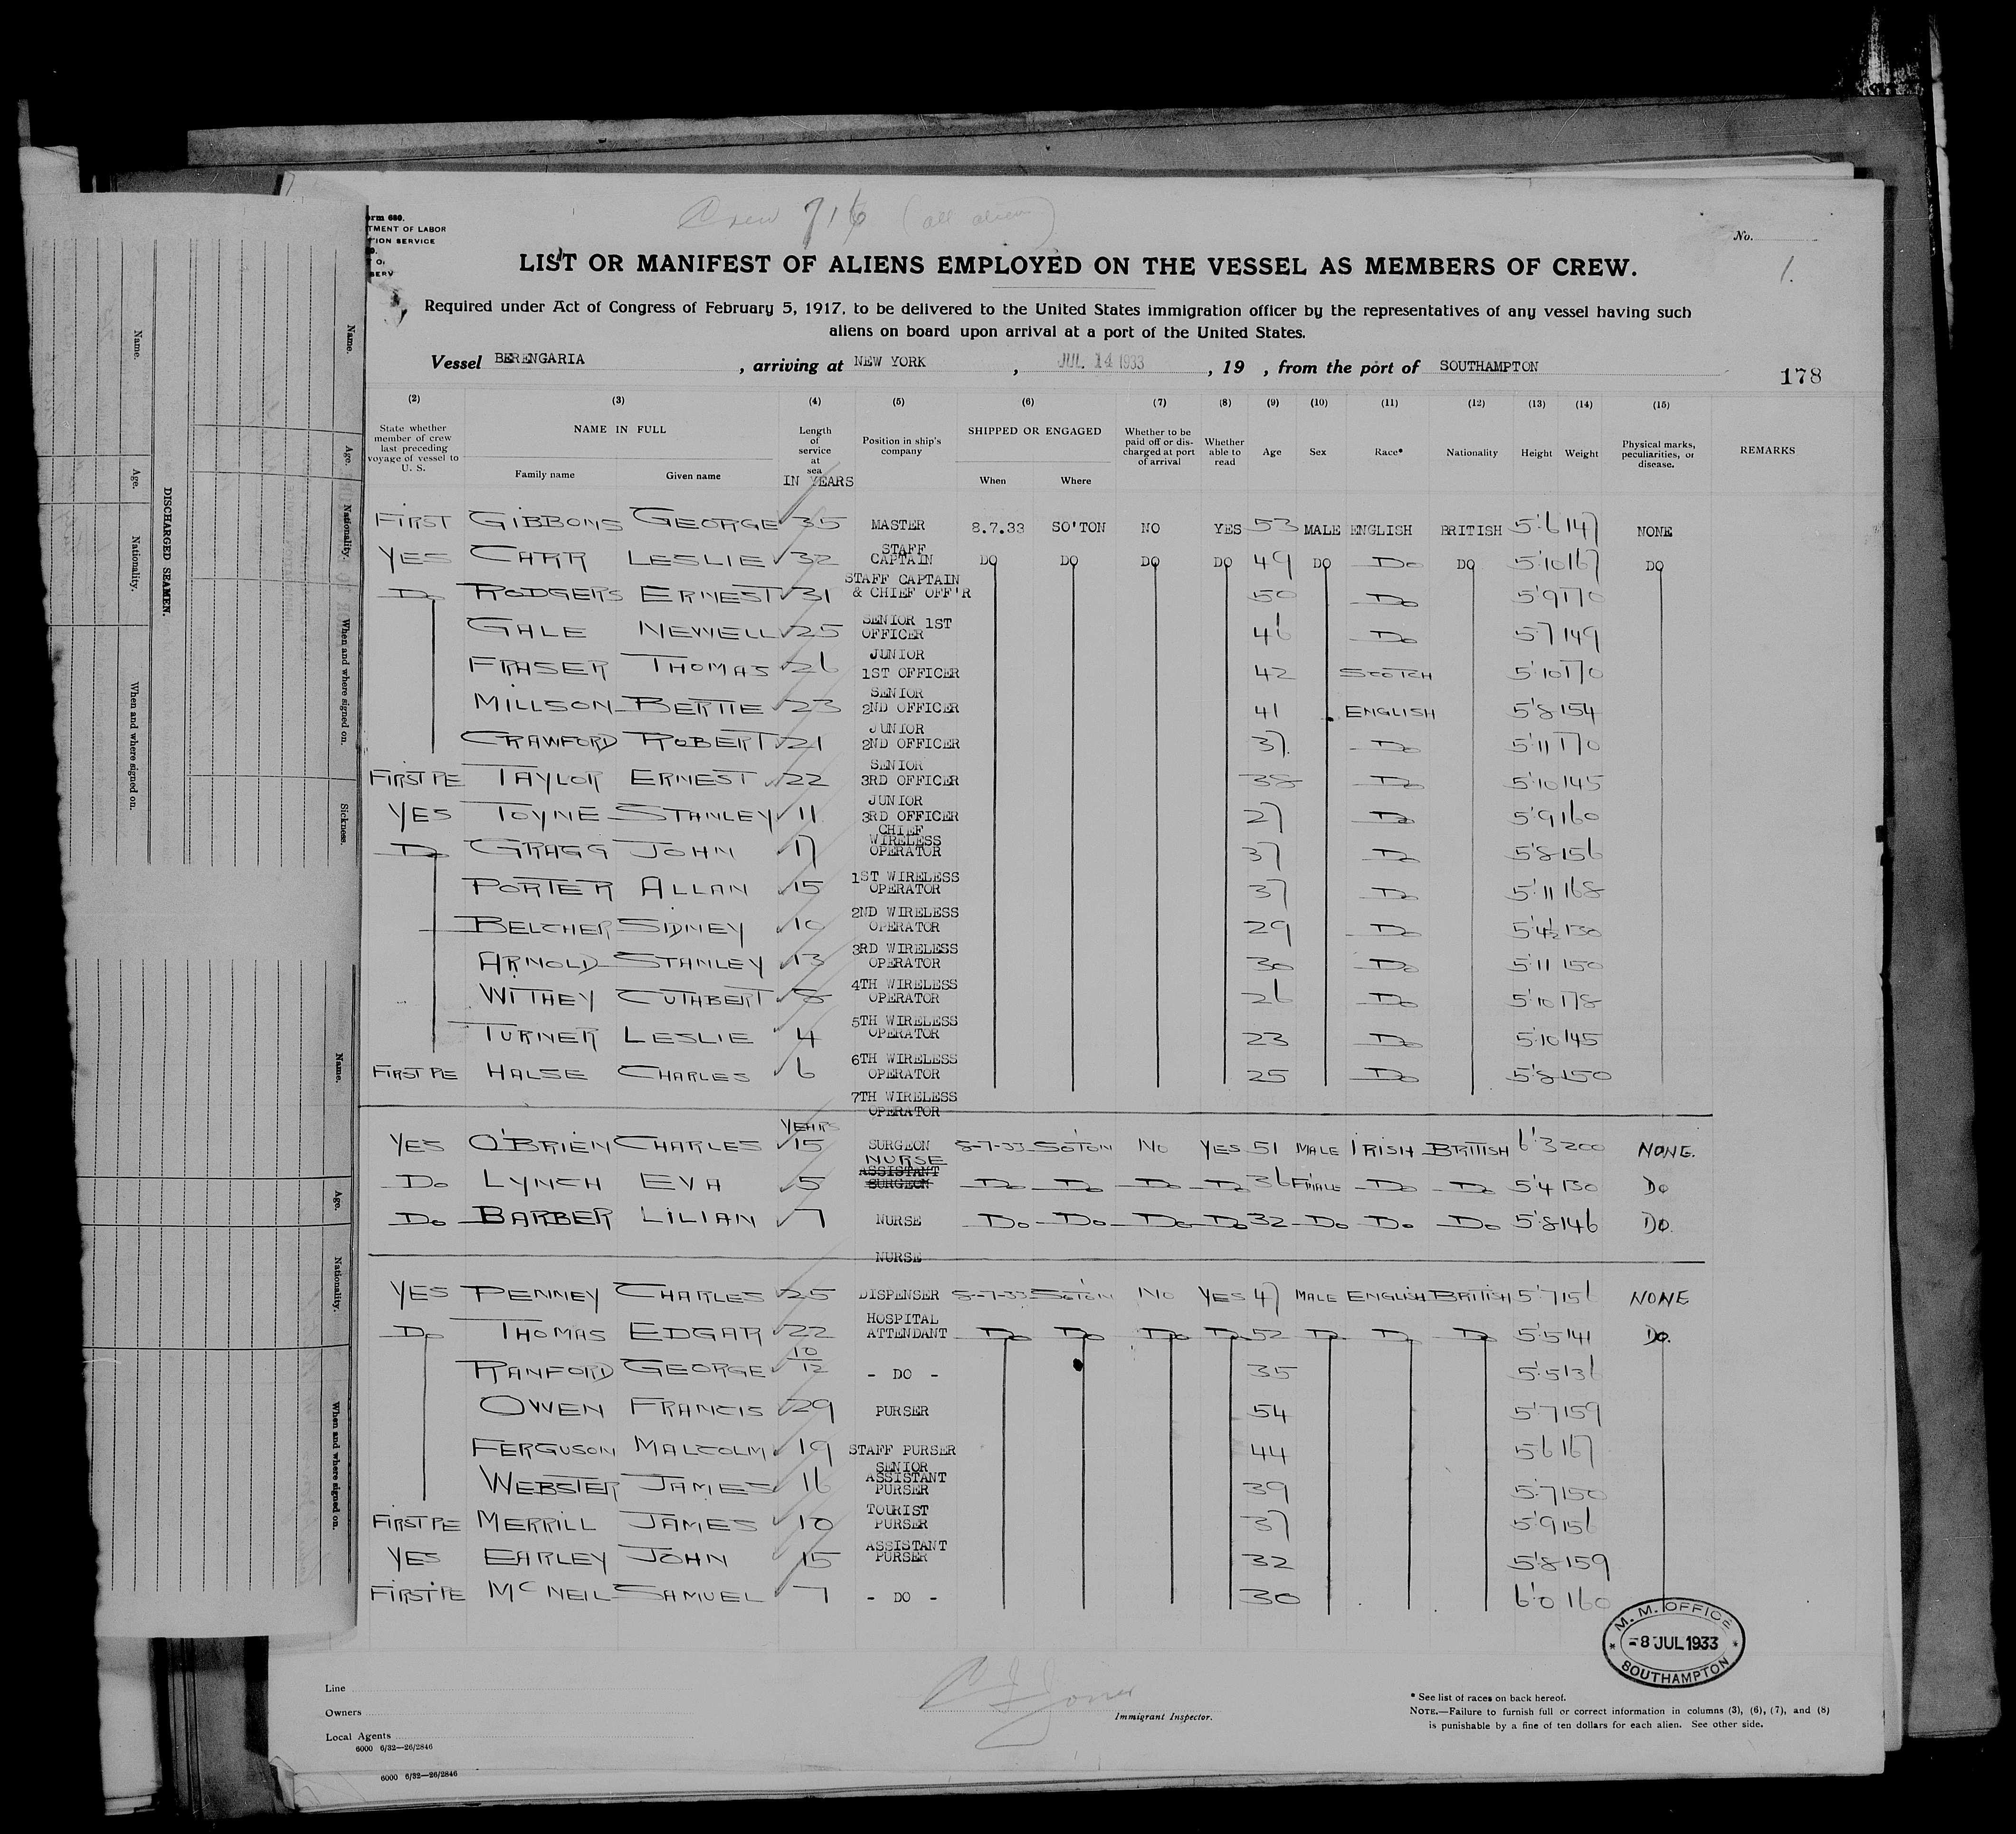 Crew 716 (all aliens)
orm 680.
TMENT OF LABOR
TION SERVICE
No.
1.
LIST OR MANIFEST OF ALIENS EMPLOYED ON THE VESSEL AS MEMBERS OF CREW.
Required under Act of Congress of February 5, 1917, to be delivered to the United States immigration officer by the representatives of any vessel having such
aliens on board upon arrival at a port of the United States.
Vessel BERENGARIA , arriving at NEW YORK , JUL 14 1933 , 19 , from the port of SOUTHAMPTON
178
(2) (3) (4) (5) (6) (7) (8) (9) (10) (11) (12) (13) (14) (15)
State whether member of crew last preceding voyage of vessel to U. S. NAME IN FULL Family name Given name Length of service at sea IN YEARS Position in ship's company SHIPPED OR ENGAGED When Where Whether to be paid off or discharged at port of arrival Whether able to read Age Sex Race* Nationality Height Weight Physical marks, peculiarities, or disease. REMARKS
FIRST GIBBONS GEORGE 35 MASTER 8.7.33 SO'TON NO YES 53 MALE ENGLISH BRITISH 5'6 147 NONE
YES CARR LESLIE 32 STAFF CAPTAIN DO DO DO DO 49 DO DO DO 5'10 167 DO
DO RODGERS ERNEST 31 STAFF CAPTAIN & CHIEF OFF'R 50 DO 5'9 170
GALE NEWELL 25 SENIOR 1ST OFFICER 46 DO 5'7 149
FRASER THOMAS 26 JUNIOR 1ST OFFICER 42 SCOTCH 5'10 170
MILLSON BERTIE 23 SENIOR 2ND OFFICER 41 ENGLISH 5'8 154
CRAWFORD ROBERT 21 JUNIOR 2ND OFFICER 37. DO 5'11 170
FIRST PE TAYLOR ERNEST 22 SENIOR 3RD OFFICER 38 DO 5'10 145
YES TOYNE STANLEY 11 JUNIOR 3RD OFFICER 27 DO 5'9 160
DO GRAGG JOHN 17 CHIEF WIRELESS OPERATOR 37 DO 5'8 156
PORTER ALLAN 15 1ST WIRELESS OPERATOR 37 DO 5'11 168
BELCHER SIDNEY 10 2ND WIRELESS OPERATOR 29 DO 5'4½ 130
ARNOLD STANLEY 13 3RD WIRELESS OPERATOR 30 DO 5'11 150
WITHEY CUTHBERT 8 4TH WIRELESS OPERATOR 26 DO 5'10 178
TURNER LESLIE 4 5TH WIRELESS OPERATOR 23 DO 5'10 145
FIRST PE HALSE CHARLES 6 6TH WIRELESS OPERATOR 25 DO 5'8 150
7TH WIRELESS OPERATOR
YEARS
YES O'BRIEN CHARLES 15 SURGEON 8-7-33 SOTON NO YES 51 MALE IRISH BRITISH 6'3 200 NONE.
DO LYNCH EVA 5 NURSE ASSISTANT SURGEON DO DO DO DO 36 F'MALE DO DO 5'4 130 DO
DO BARBER LILIAN 7 NURSE DO DO DO DO 32 DO DO DO 5'8 146 DO.
NURSE
YES PENNEY CHARLES 25 DISPENSER 8-7-33 SOTON NO YES 47 MALE ENGLISH BRITISH 5'7 156 NONE
DO THOMAS EDGAR 22 HOSPITAL ATTENDANT DO DO DO DO 52 DO DO DO 5'5 141 DO.
RANFORD GEORGE 10/12 - DO - 35 5'5 136
OWEN FRANCIS 29 PURSER 54 5'7 159
FERGUSON MALCOLM 19 STAFF PURSER 44 5'6 167
WEBSTER JAMES 16 SENIOR ASSISTANT PURSER 39 5'7 150
FIRST PE MERRILL JAMES 10 TOURIST PURSER 37 5'9 156
YES EARLEY JOHN 15 ASSISTANT PURSER 32 5'8 159
FIRST PE MCNEIL SAMUEL 7 - DO - 30 6'0 160
M. M. OFFICE
-8 JUL 1933
SOUTHAMPTON
Line
Owners
Local Agents
6000 6/32—26/2846
6000 6/32—26/2846
Immigrant Inspector.
* See list of races on back hereof.
NOTE.—Failure to furnish full or correct information in columns (3), (6), (7), and (8)
is punishable by a fine of ten dollars for each alien. See other side.
DISCHARGED SEAMEN.
Name. Age. Nationality. When and where signed on.
Name. Age. Nationality. When and where signed on. Sickness.
Name. Age. Nationality. When and where signed on.